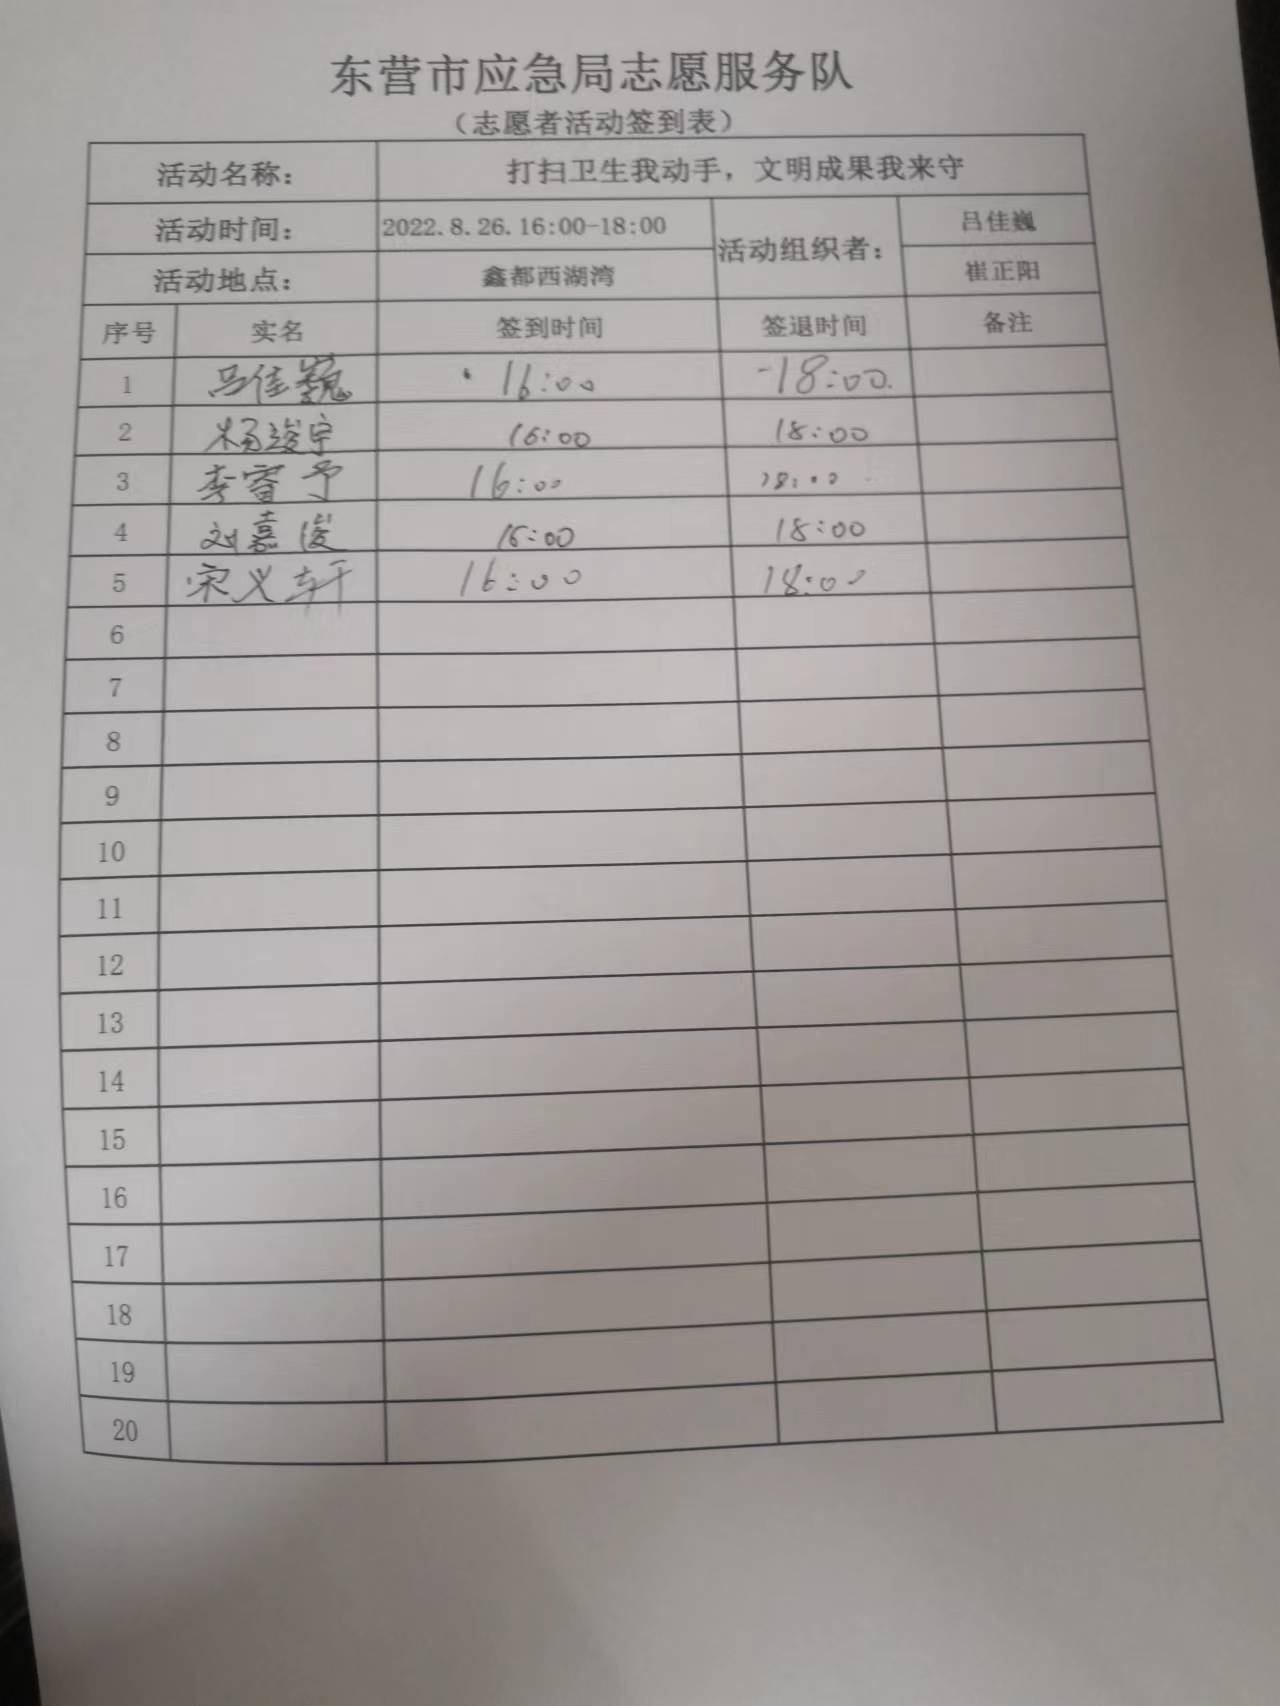 东营市应急局志愿服务队
（志愿者活动签到表）
活动名称： 打扫卫生我动手，文明成果我来守
活动时间： 2022.8.26.16:00-18:00 活动组织者： 吕佳巍
活动地点： 鑫都西湖湾 崔正阳
序号 实名 签到时间 签退时间 备注
1 吕佳巍 16:00 18:00
2 杨竣宇 16:00 18:00
3 李睿予 16:00 18:00
4 刘嘉俊 16:00 18:00
5 宋义轩 16:00 18:00
6
7
8
9
10
11
12
13
14
15
16
17
18
19
20